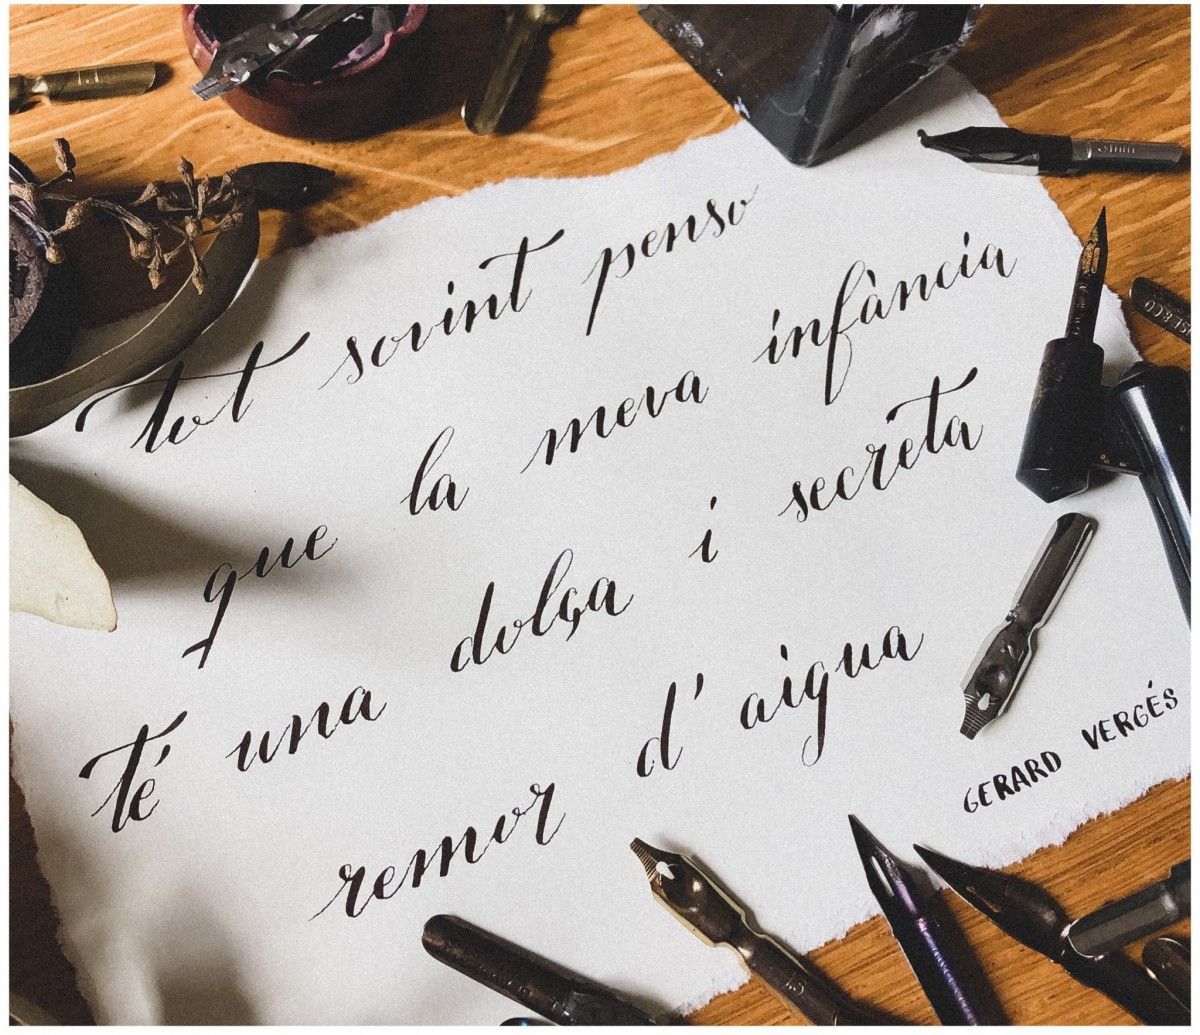 tot sovint penso
que la meva infància
té una dolça i secreta
remor d'aigua
GERARD VERGÉS